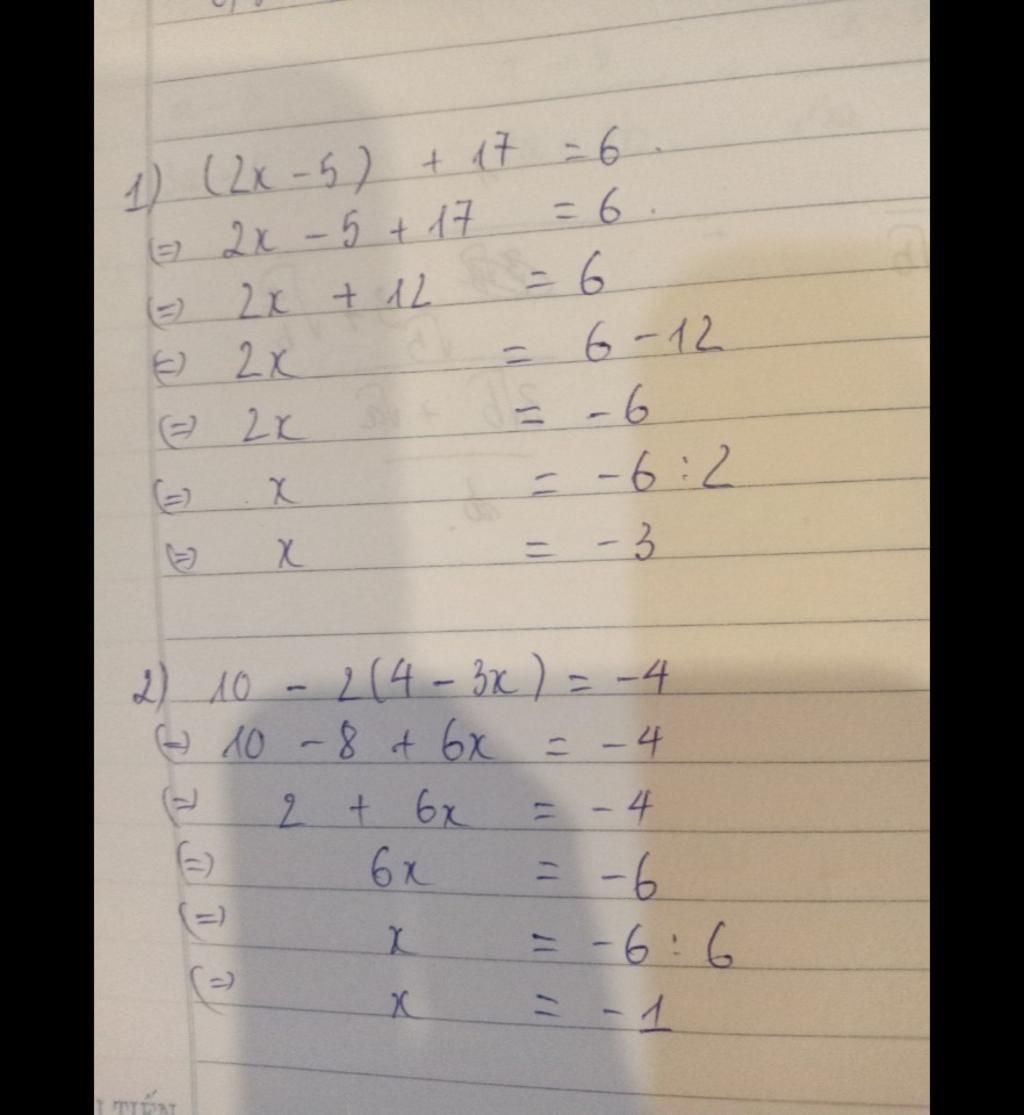 1) (2x - 5) + 17 = 6.
(=) 2x - 5 + 17 = 6.
(=) 2x + 12 = 6
(=) 2x = 6 - 12
(=) 2x = - 6
(=) x = - 6 : 2
(=) x = - 3
2) 10 - 2(4 - 3x) = - 4
(=) 10 - 8 + 6x = - 4
(=) 2 + 6x = - 4
(=) 6x = - 6
(=) x = - 6 : 6
(=) x = - 1
TIẾN